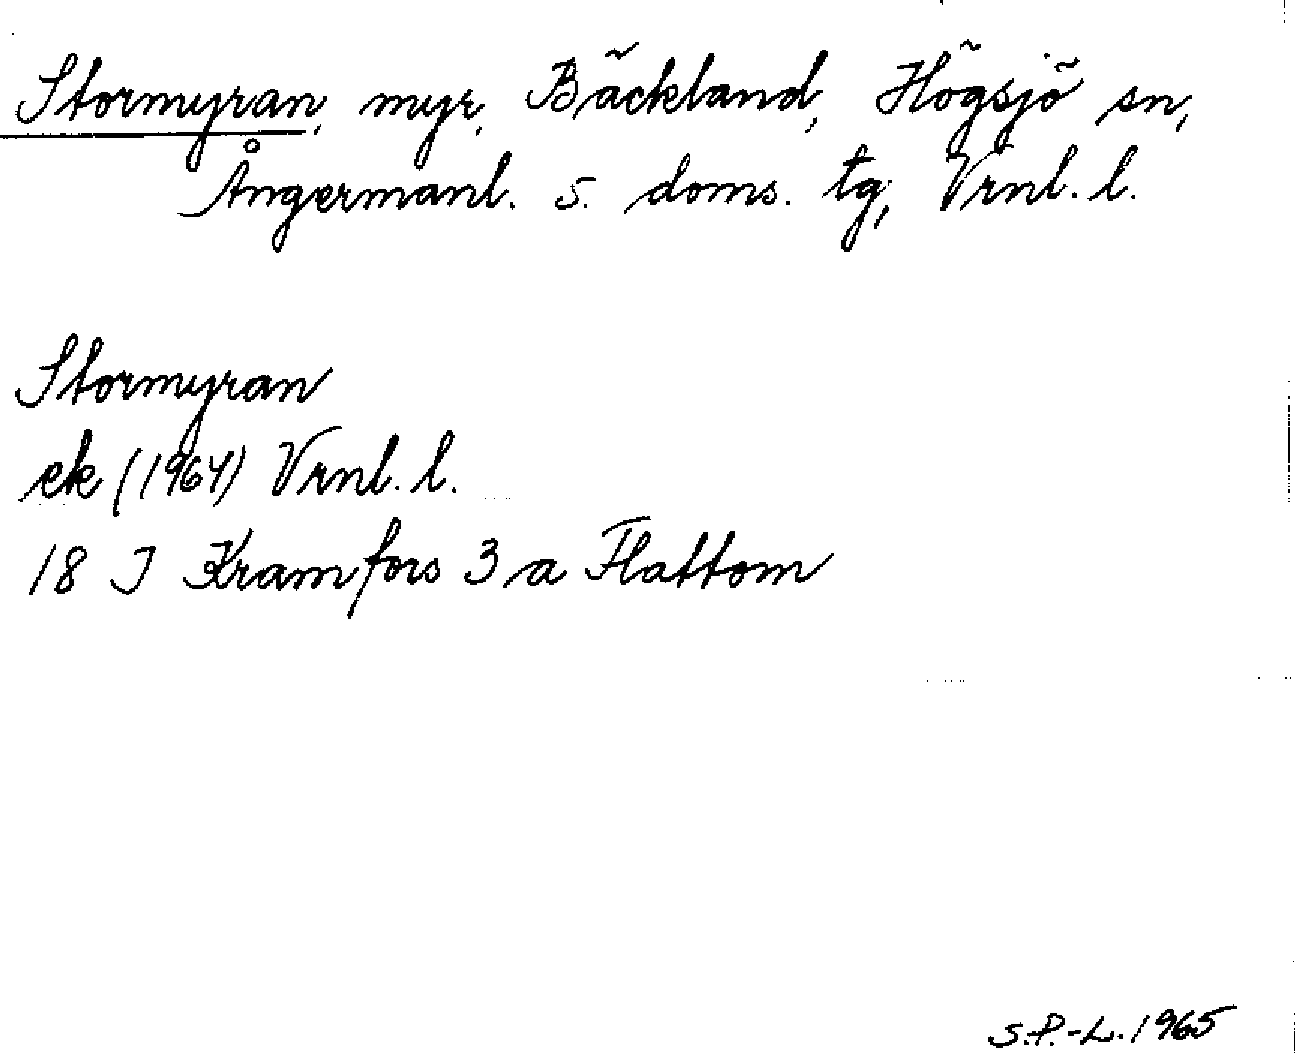 Stormyran, myr, Bäckland, Högsjö sn,
Ångermanl. s. doms. tg, Vrnl. l.
Stormyran
ek (1964) Vrnl. l.
18 I Kramfors 3 a Flattom
S.P.-L. 1965